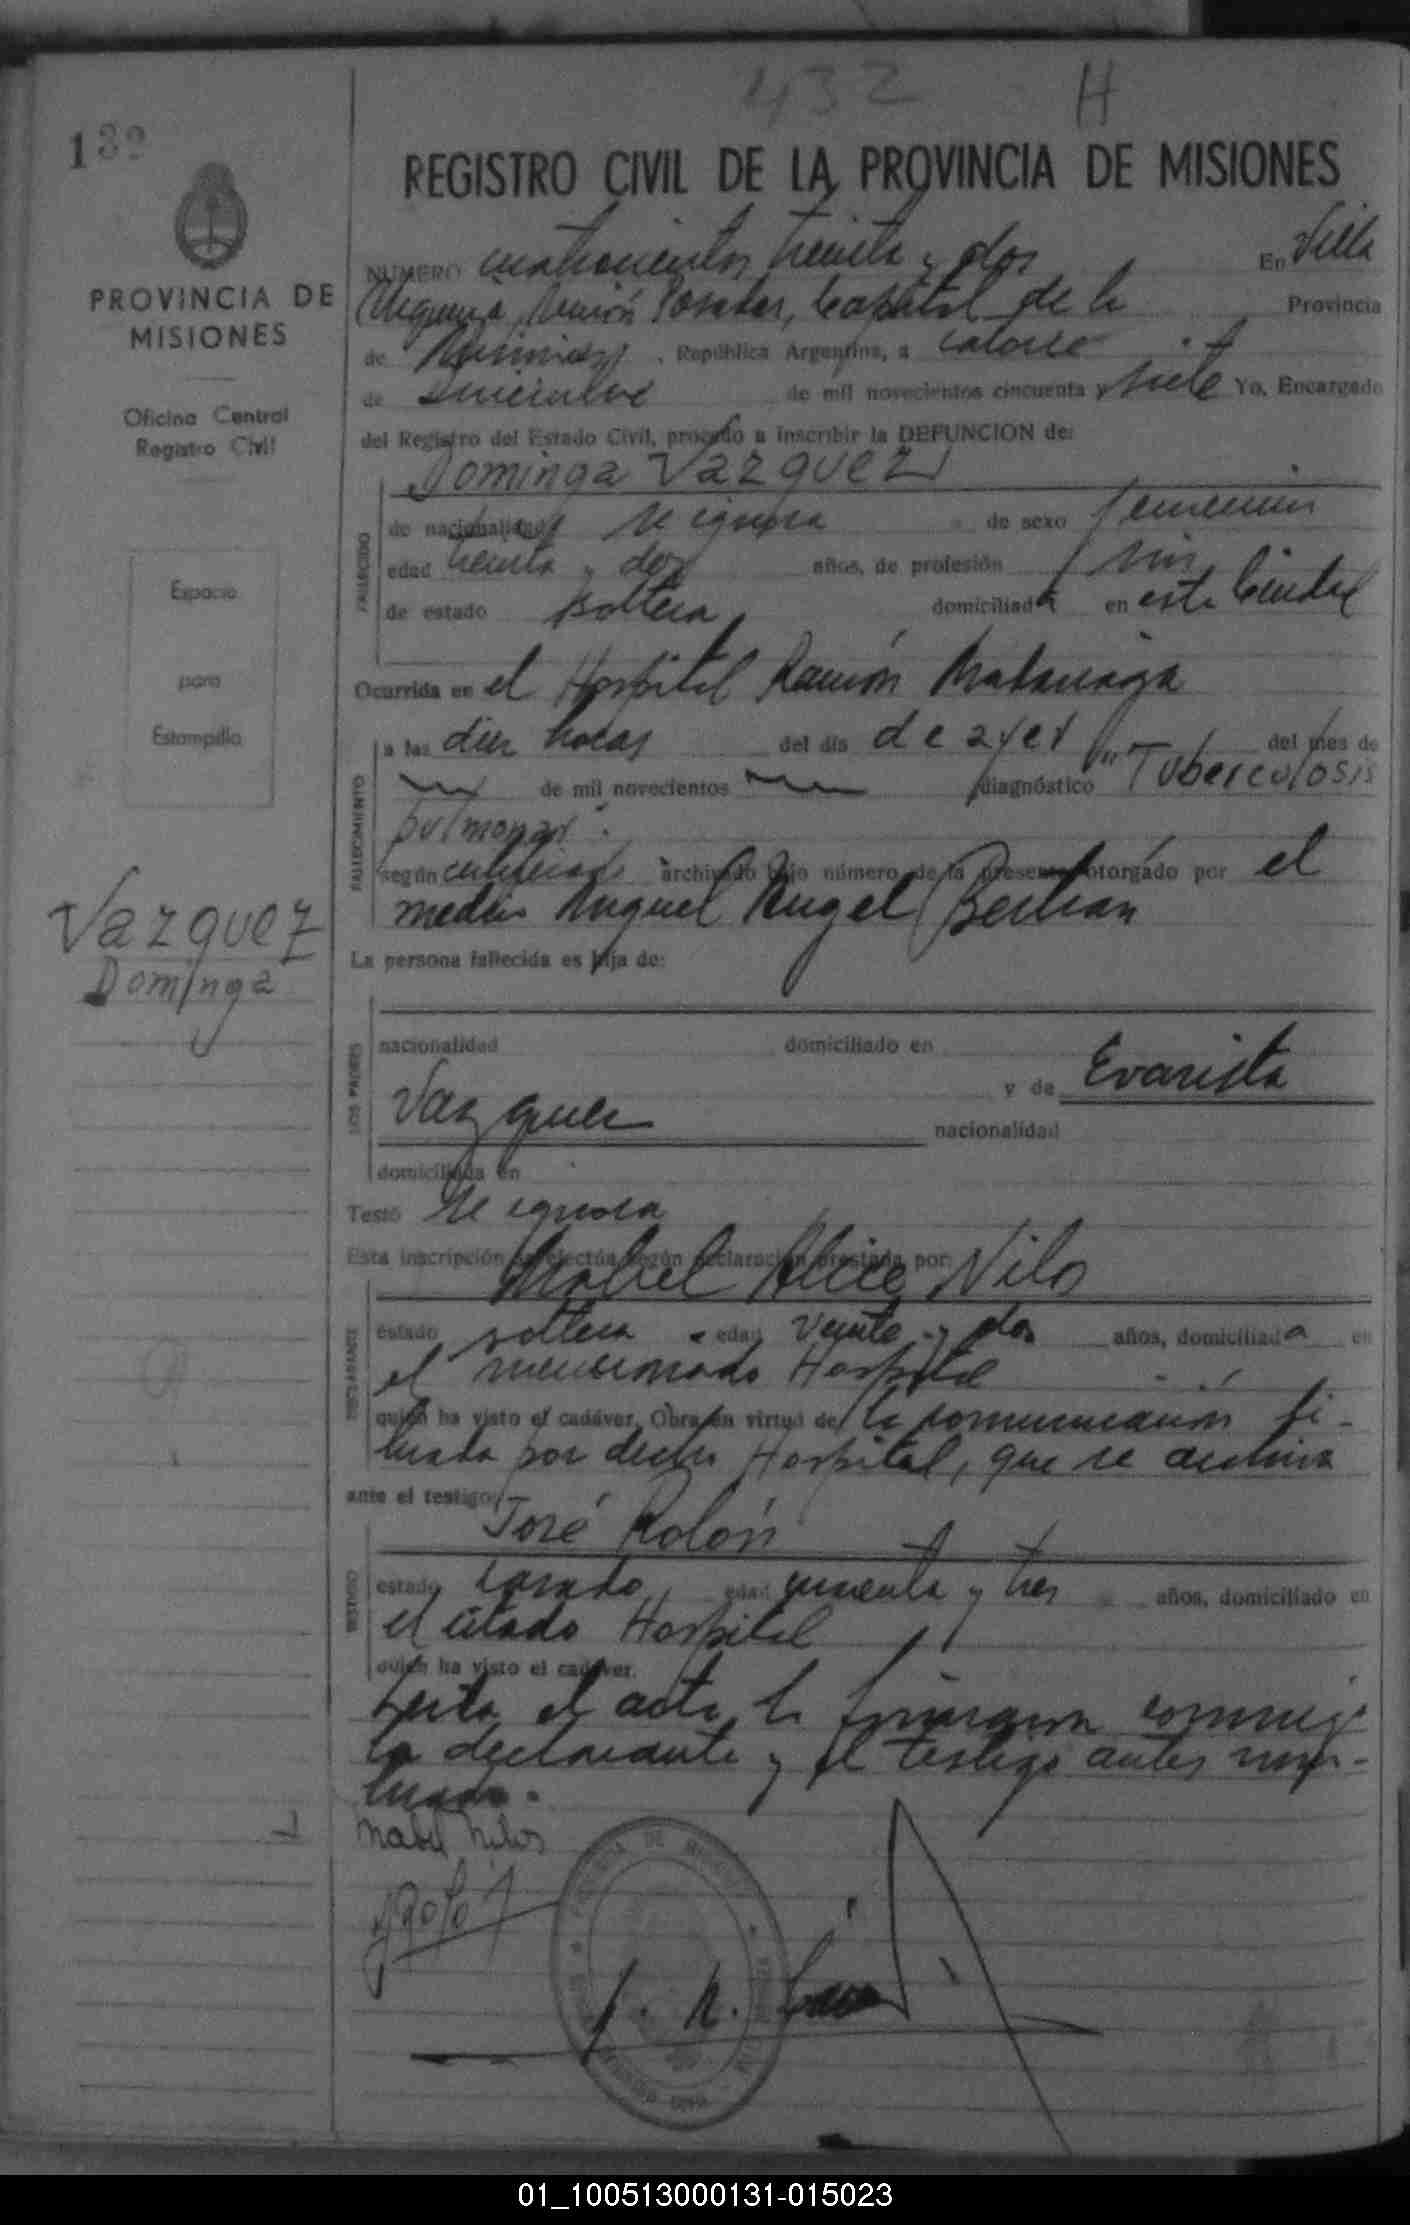 432 H
132
REGISTRO CIVIL DE LA PROVINCIA DE MISIONES
PROVINCIA DE
MISIONES
Oficina Central
Registro Civil
Espacio
para
Estampilla
Vazquez
Dominga
NUMERO cuatrocientos treinta y dos En Villa
Posadas, Capital de la Provincia
de Misiones, República Argentina, a catorce
de diciembre de mil novecientos cincuenta y siete Yo, Encargado
del Registro del Estado Civil, procedo a inscribir la DEFUNCION de:
Dominga Vazquez
FALLECIDO
de nacionalidad se ignora de sexo femenino
edad treinta y dos años, de profesión
de estado soltera domiciliada en esta Ciudad
Ocurrida en el Hospital Ramón Madariaga
FALLECIMIENTO
a las diez horas del día de ayer del mes de
de mil novecientos diagnóstico "Tuberculosis
pulmonar".
según certificado archivado bajo número de la presente otorgado por el
medico Miguel Angel Bertran
La persona fallecida es hija de:
LOS PADRES
nacionalidad domiciliado en
y de Evarista
Vazquez nacionalidad
domiciliada en
Testó se ignora
Esta inscripción se efectúa según declaración prestada por:
Mabel Alice Nilo
DECLARANTE
estado soltera edad veinte y dos años, domiciliada en
el mencionado Hospital
quien ha visto el cadáver, Obra en virtud de la comunicación fi-
mada por dicho Hospital, que se archiva
ante el testigo:
José Rolón
TESTIGO
estado casado edad cuarenta y tres años, domiciliado en
el citado Hospital
quien ha visto el cadáver.
Leida el acta, la firmaron conmigo
la declarante y el testigo antes nom-
brado.
01_100513000131-015023